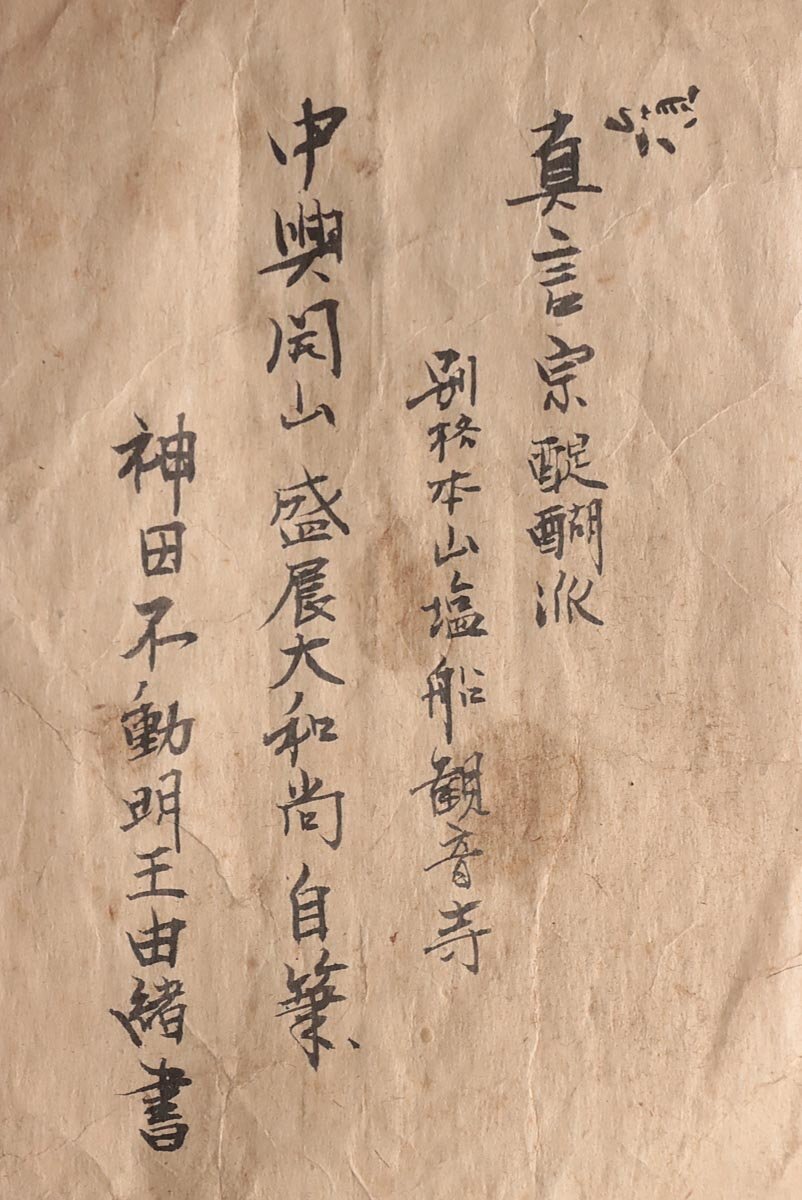 真言宗醍醐派
別格本山塩船観音寺
中興開山 盛展大和尚自筆
神田不動明王由緒書